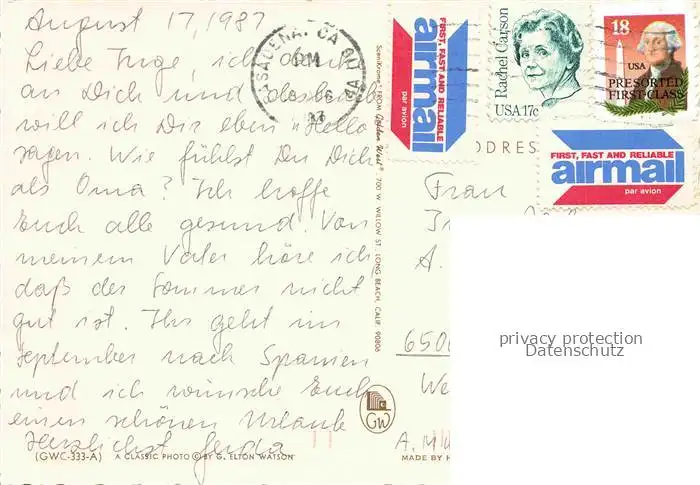 August 17, 1987
Liebe Inge, ich denke
an Dich und deshalb
will ich Dir eben "Hello"
sagen. Wie fühlst Du Dich
als Oma? Ich hoffe
Euch alle gesund. Von
meinem Vater höre ich
daß der Sommer nicht
gut ist. Ihr geht im
September nach Spanien
und ich wünsche Euch
einen schönen Urlaub
Herzlichst Gerda
(GWC-333-A) A CLASSIC PHOTO © BY G. ELTON WATSON
SemiKrome® FROM Golden West® 700 W. WILLOW ST., LONG BEACH, CALIF. 90806
PASADENA, CA
PM
FIRST, FAST AND RELIABLE
airmail
par avion
Rachel Carson
USA 17c
18
USA
PRESORTED
FIRST-CLASS
FIRST, FAST AND RELIABLE
airmail
par avion
DDRES
Frau
A.
6500
We
GW
A. M
MADE BY H
privacy protection
Datenschutz